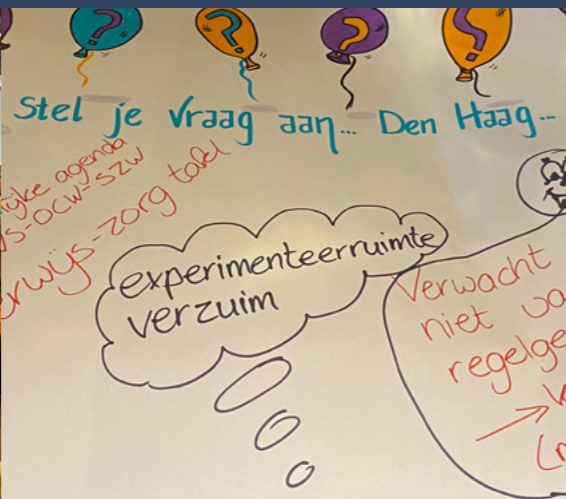 ? ? ? ?
Stel je vraag aan... Den Haag...
ijke agenda
S-OCW-SZW
erwijs-zorg tafel
experimenteerruimte
verzuim
Verwacht
niet va
regelge